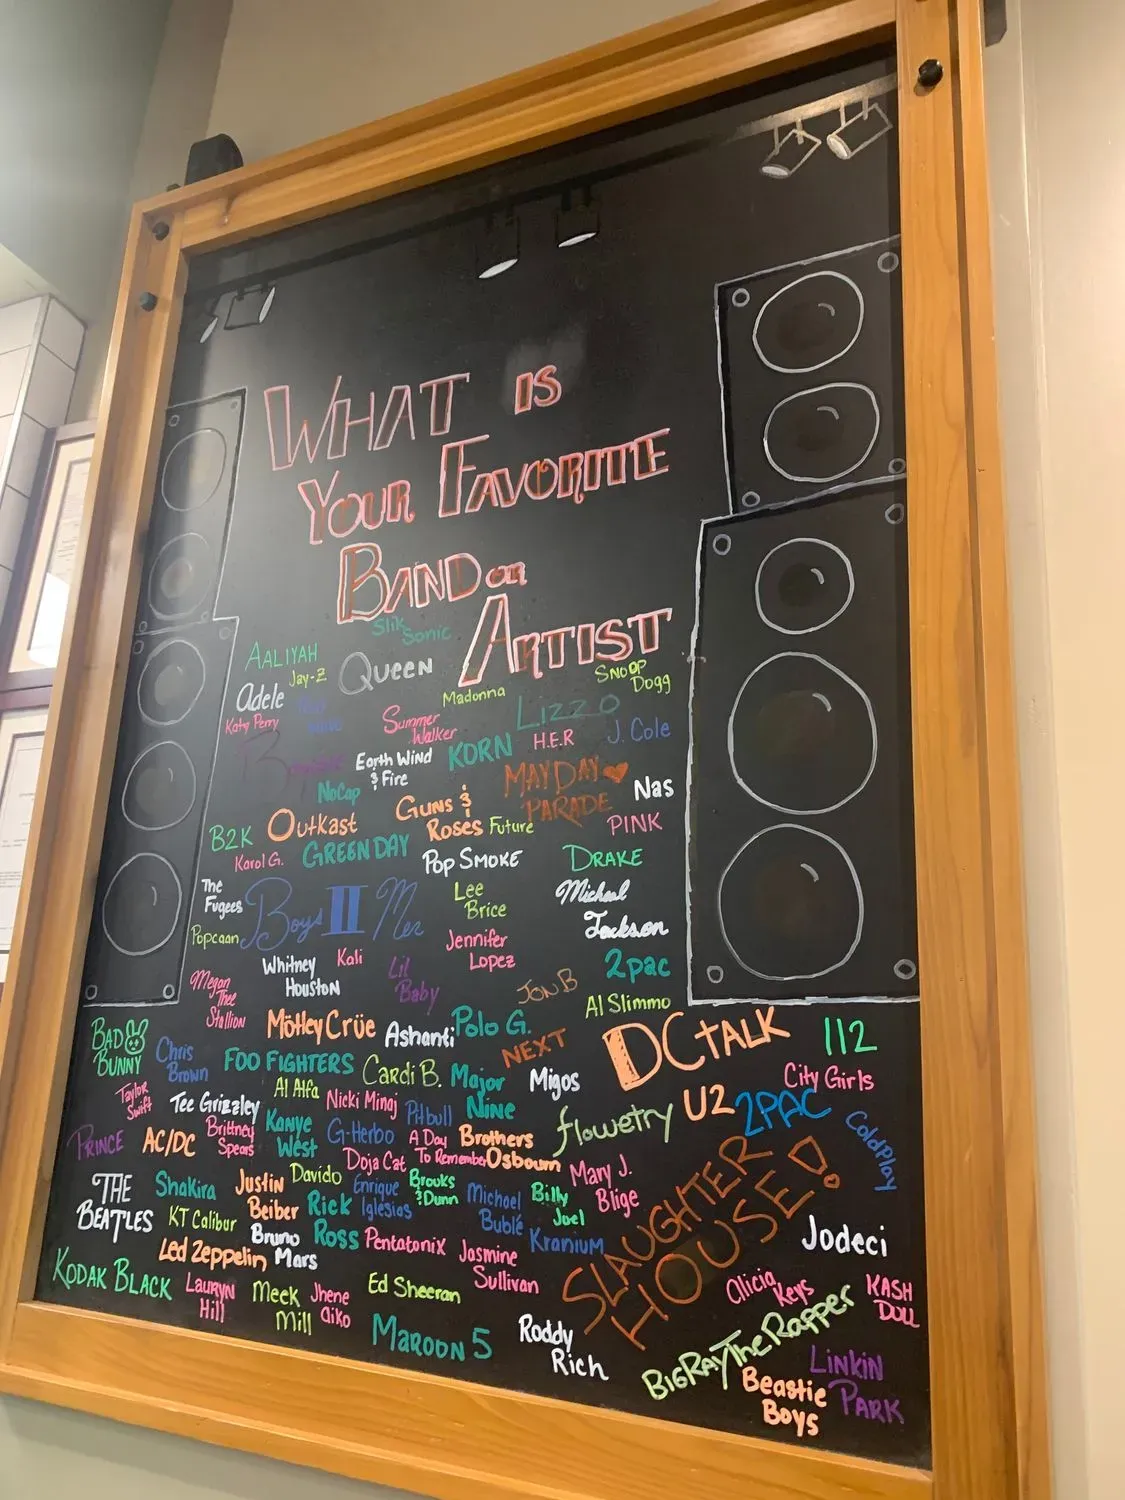 WHAT IS
YOUR FAVORITE
BAND OR
ARTIST
Slik Sonic
AALIYAH
Jay-Z
QUEEN
SNOOP
Dogg
Adele
Madonna
Katy Perry
Summer
Walker
LIZZO
H.E.R
J. Cole
Earth Wind
& Fire
KORN
MAYDAY
PARADE
Nas
NoCap
GUNS &
ROSES
Future
PINK
B2K
OutKast
Karol G.
GREEN DAY
POP SMOKE
DRAKE
The
Fugees
Boys II Men
Lee
Brice
Michael
Jackson
Popcaan
Jennifer
Lopez
Whitney
HOUSTON
Kali
Lil
Baby
2pac
Megan
Thee
Stallion
JON B
Al Slimmo
BAD
BUNNY
Mötley Crüe
Ashanti
Polo G.
NEXT
DC TALK
112
Chris
Brown
FOO FIGHTERS
Cardi B.
Major
Nine
Migos
City Girls
Taylor
Swift
Al Alfa
Tee Grizzley
Nicki Minaj
Pitbull
flowetry
U2
2PAC
ColdPlay
PRINCE
AC/DC
Brittney
Spears
Kanye
West
G-Herbo
A Day
To Remember
Brothers
Osbourn
Doja Cat
Mary J.
Blige
SLAUGHTER
HOUSE!
THE
BEATLES
Shakira
Justin
Beiber
Davido
Enrique
Iglesias
Brooks
& Dunn
Michael
Bublé
Billy
Joel
KT Calibur
Bruno
Mars
Rick
Ross
Pentatonix
Kranium
Jodeci
Led Zeppelin
Jasmine
Sullivan
KODAK BLACK
Lauryn
Hill
Meek
Mill
Jhene
Aiko
Ed Sheeran
Alicia
Keys
KASH
DOLL
MAROON 5
Roddy
Rich
BIGRAYTheRapper
LINKIN
PARK
Beastie
Boys